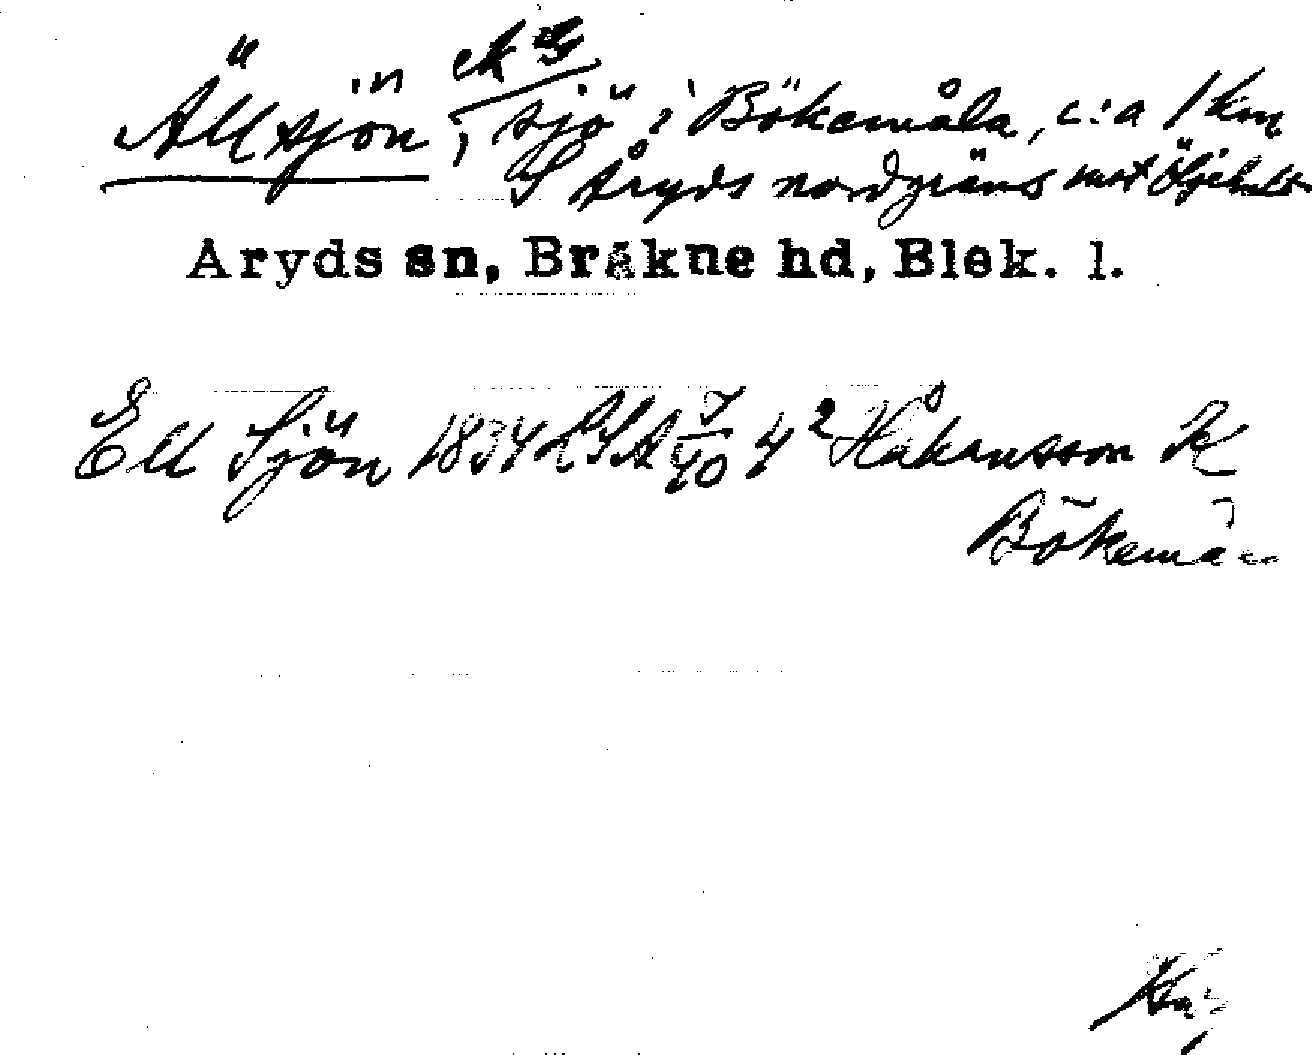 Ällsjön, sjö i Bökemåla, c:a 1 km
S Åryds nordgräns mot Öljehult
Åryds sn, Bräkne hd, Blek. l.
Ell Sjön 1834 LSA 7/40 4² Håkansson K
Bökemå